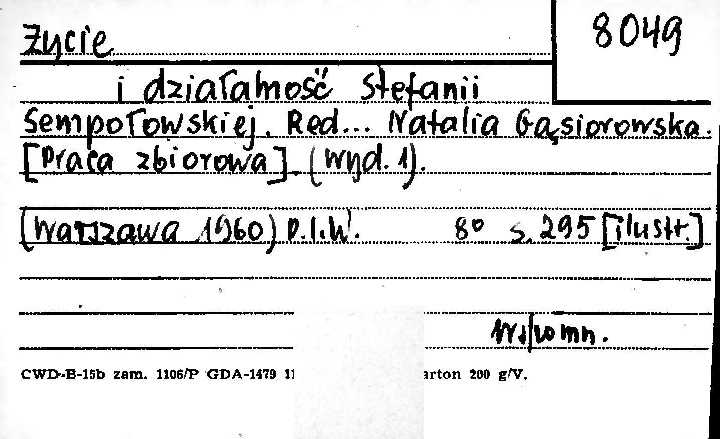 8049
Życie
i działalność Stefanii
Sempołowskiej. Red... Natalia Gąsiorowska.
[Praca zbiorowa]. (Wyd. 1).
(Warszawa 1960) P.I.W. 8° s. 295 [ilustr.]
CWD-B-15b zam. 1106/P GDA-1479 11 arton 200 g/V.